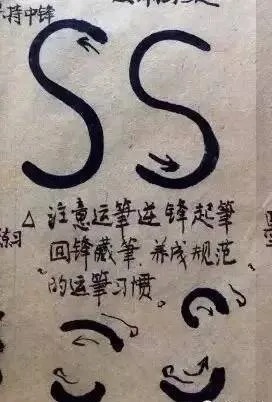 持中锋
SS
△ 注意运筆逆锋起筆
回锋藏筆.养成规范
的运筆习惯。
练习